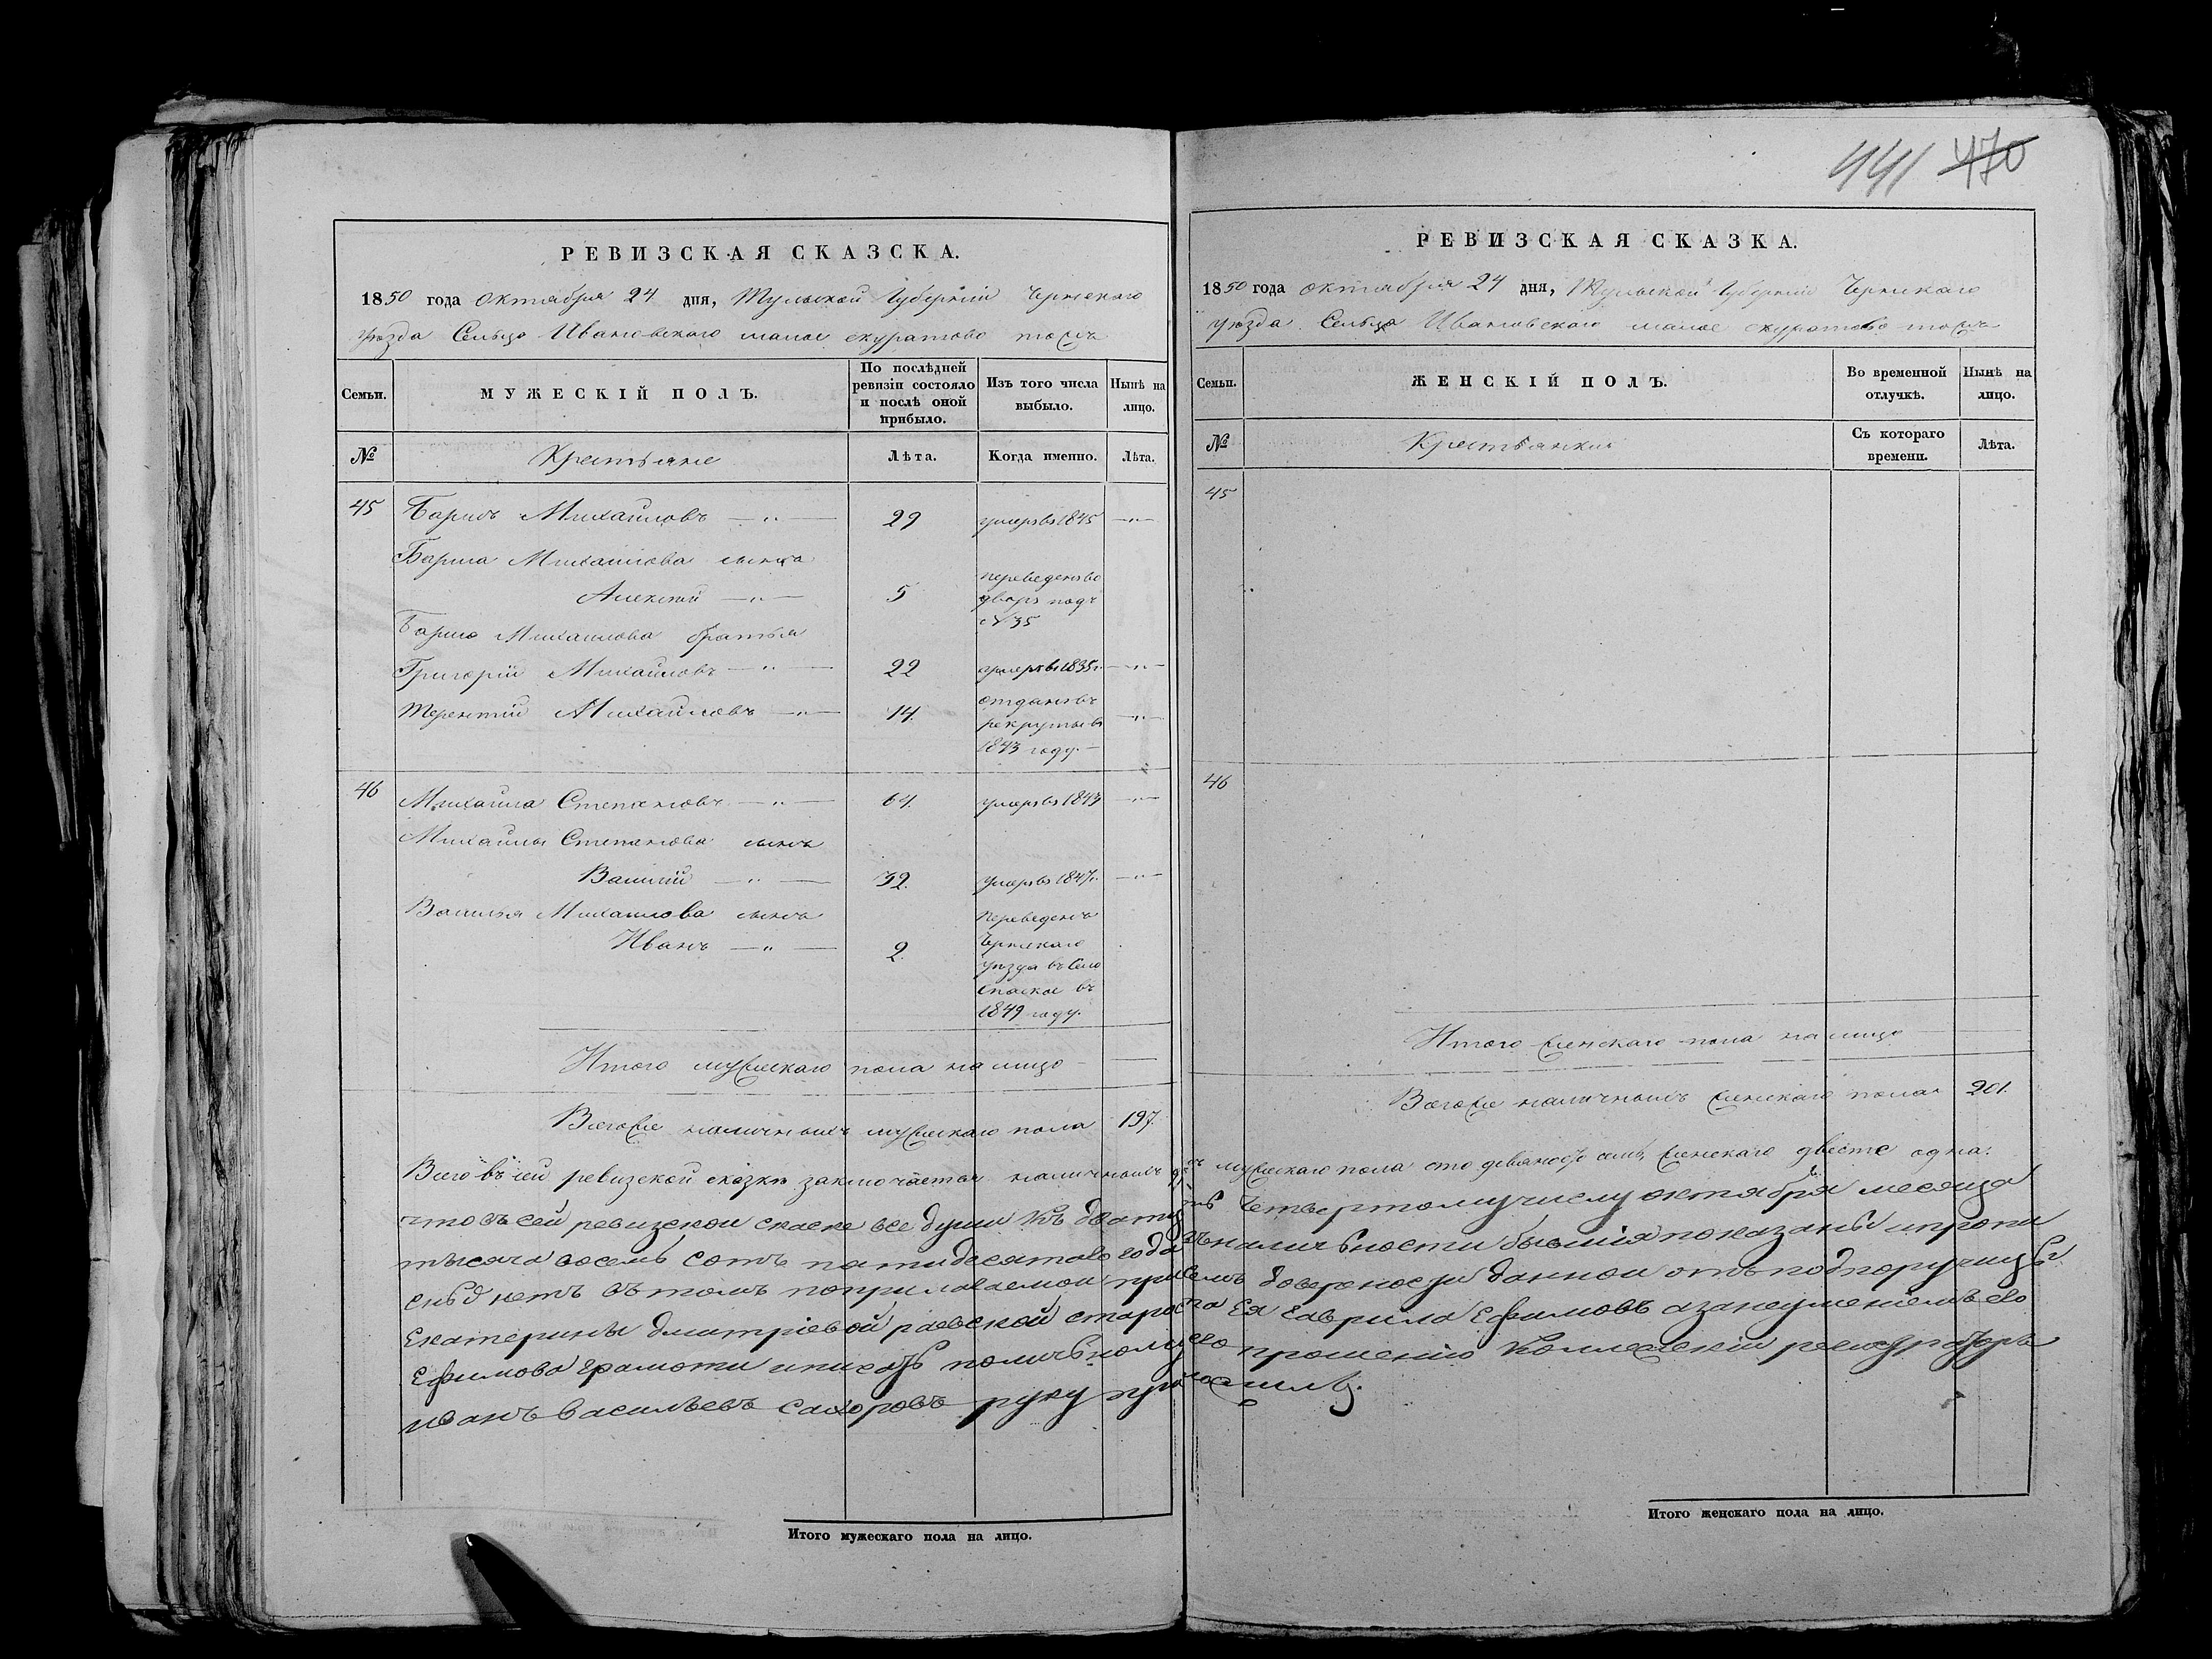 441 470
РЕВИЗСКАЯ СКАЗСКА.
1850 года Октября 24 дня, Тульской Губерніи Чернскаго
уѣзда Сельцо Ивановскаго малое скуратово тожъ
Семьи.
МУЖЕСКІЙ ПОЛЪ.
По послѣдней
ревизіи состояло
и послѣ оной
прибыло.
Изъ того числа
выбыло.
Нынѣ на
лицо.
№
Крестьяне
Лѣта.
Когда именно.
Лѣта.
45 Барисъ Михайловъ — " — 29 умеръ въ 1845 — " —
Бариса Михайлова сынъ
Алексѣй — " — 5 переведенъ во
дворъ подъ
№ 35
Бариса Михайлова братья
Григорій Михайловъ — " — 22 умеръ въ 1835 г. — " —
Терентій Михайловъ — " — 14. отданъ въ
рекруты въ
1843 году. — " —
46 Михайла Степановъ — " — 64. умеръ въ 1843 — " —
Михайлы Степанова сынъ
Василій — " — 32. умеръ въ 1847 г. — " —
Василья Михайлова сынъ
Иванъ — " — 2. переведенъ
Чернскаго
уѣзда въ Село
Спаское въ
1849 году.
Итого мужескаго пола на лицо —
Всегоже наличныхъ мужескаго пола 197.
РЕВИЗСКАЯ СКАЗКА.
1850 года октября 24 дня, Тульской Губерніи Чернскаго
уѣзда Сельцо Ивановскаго малое скуратово тожъ
Семьи.
ЖЕНСКІЙ ПОЛЪ.
Во временной
отлучкѣ.
Нынѣ на
лицо.
№
Крестьянки
Съ котораго
времени.
Лѣта.
45
46
Итого женскаго пола на лицо —
Всегоже наличныхъ женскаго пола 201.
Всего въ сей ревизской сказкѣ заключается наличныхъ мужескаго пола сто девяносто семь, женскаго двѣсте одна.
что въ сей ревизской скаске все души къ дватцать четвертому числу октября месяца
тысяча восемь сотъ патидесятаго года въ наличности бывшія показаны и пропи
сныхъ нетъ въ томъ поприлагаемой присемъ доверености данной отъ подпоручицы
Екатерины дмитріевой раевской староста Ея Гаврила Ефимовъ азанеумениемъ его
Ефимова Грамоти иписать поличьному его прошенію Коллежскій регистраторъ
иванъ васильевъ сахоровъ руку приложилъ.
Итого мужескаго пола на лицо.
Итого женскаго пола на лицо.